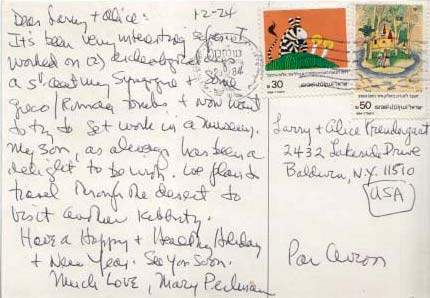 Dear Larry + Alice: 12-24
It's been very interesting so far. I
worked on (2) archeological digs
a 5th century Synagogue + some
greco/Roman tombs + now want
to try to get work in a museum.
My son, as always has been a
delight to be with. We plan to
travel through the desert to
visit another Kibbutz.
Have a Happy + Healthy Holiday
+ New Year. See you soon.
Much Love, Mary Perlman
30
ישראל
50
ישראל
Larry + Alice Prendergast
2432 Lakeside Drive
Baldwin, N.Y. 11510
USA
Par Avion